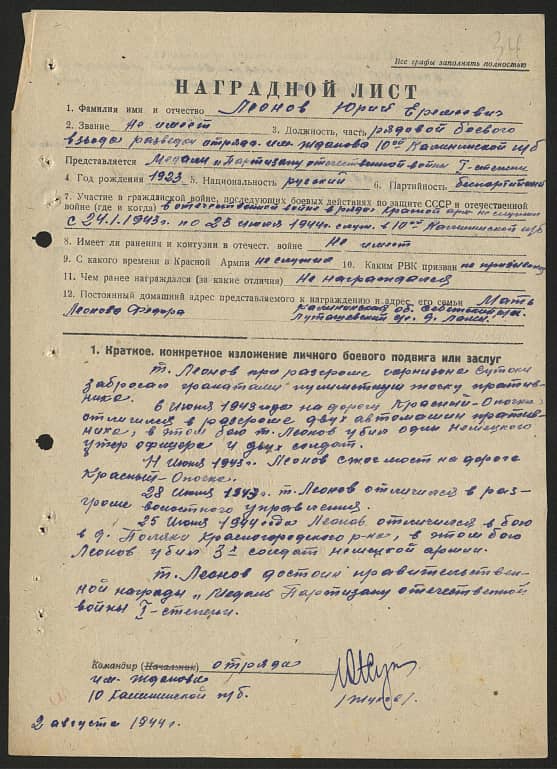 34
Все графы заполнять полностью
НАГРАДНОЙ ЛИСТ
1. Фамилия имя и отчество Леонов Юрий Еремеевич
2. Звание Не имеет 3. Должность, часть рядовой боевого
взвода разведки отряда им. Жданова 10ой Калининской п/б
Представляется Медали „Партизану отечественной войны I-степени
4. Год рождения 1923 5. Национальность русский 6. Партийность беспартийный
7. Участие в гражданской войне, последующих боевых действиях по защите СССР и отечественной
войне (где и когда) в отечественной войне в рядах красной арм. не служил
с 24.1.1943г. по 23 июля 1944г. служ. в 10ой Калининской п/б
8. Имеет ли ранения и контузии в отечест. войне Не имеет
9. С какого времени в Красной Армии не служил 10. Каким РВК призван не призывался
11. Чем ранее награждался (за какие отличия) Не награждался
12. Постоянный домашний адрес представляемого к награждению и адрес его семьи Мать
Леонова Федора Калининская об.
д.
1. Краткое, конкретное изложение личного боевого подвига или заслуг
т. Леонов при разгроме гарнизона Сутоки
забросал гранатами пулиметную точку против-
ника.
6 Июня 1943 года на дороги Красный-Опочка
отличился в разгроме двух автомашин против-
ника, в этом бою т. Леонов убил один немецкого
унтер офицера и двух солдат.
11 Июня 1943г. Леонов сжог мост на дороге
Красный-Опочка.
28 Июня 1943г. т. Леонов отличился в раз-
громе волостного управления.
25 Июня 1944 года Леонов отличился в бою
в д. Поляки Красногородского р-на, в этом бою
Леонов убил 3х солдат немецкой армии.
т. Леонов достоин правительствен-
ной награды „Медаль Партизану отечественной
войны I-степени.
Командир (Начальник) отряда
им. Жданова
10 Калининской п/б.
/Жуков/
2 августа 1944г.